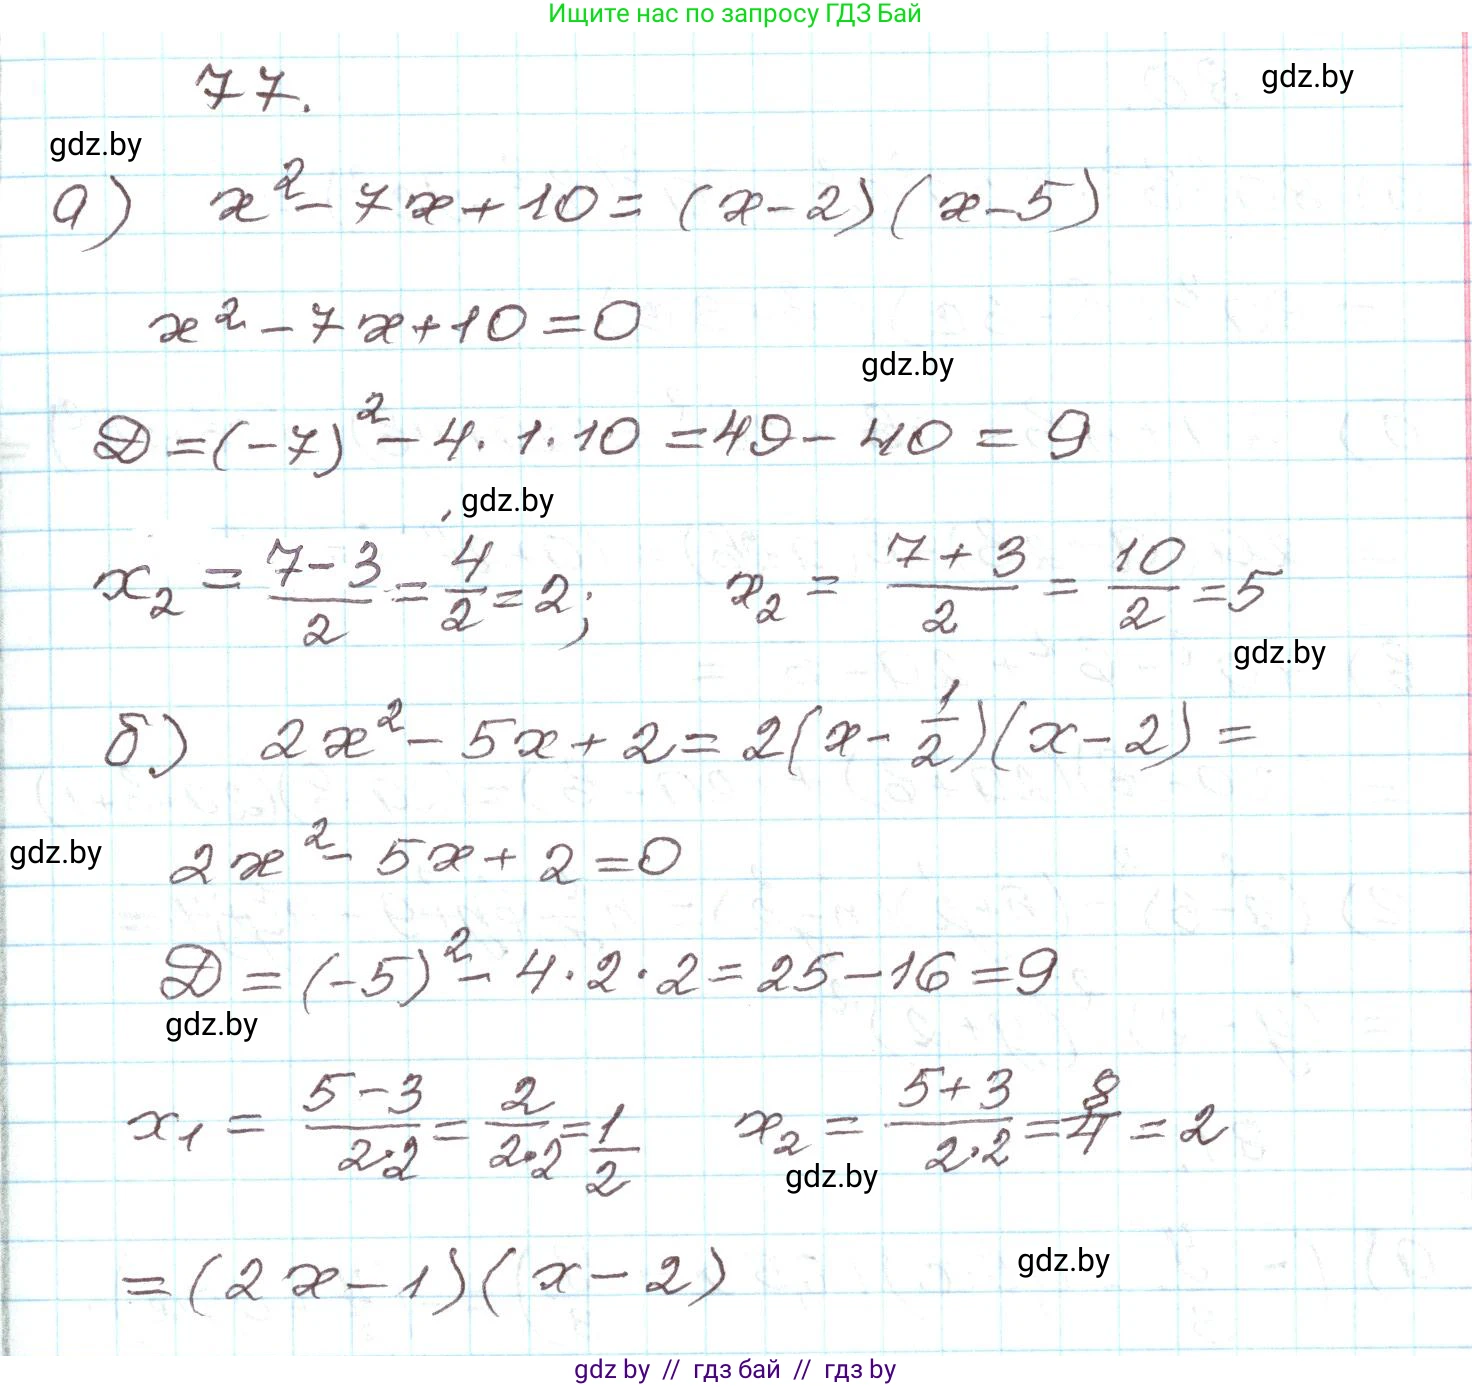 Ищите нас по запросу ГДЗ Бай
77.
gdz.by
gdz.by
а) x² - 7x + 10 = (x - 2)(x - 5)
x² - 7x + 10 = 0
gdz.by
D = (-7)² - 4 · 1 · 10 = 49 - 40 = 9
gdz.by
x₂ = (7 - 3)/2 = 4/2 = 2; x₂ = (7 + 3)/2 = 10/2 = 5
gdz.by
б) 2x² - 5x + 2 = 2(x - 1/2)(x - 2) =
gdz.by
2x² - 5x + 2 = 0
D = (-5)² - 4 · 2 · 2 = 25 - 16 = 9
gdz.by
x₁ = (5 - 3)/(2·2) = 2/(2·2) = 1/2 x₂ = (5 + 3)/(2·2) = 8/4 = 2
gdz.by
= (2x - 1)(x - 2)
gdz.by
gdz.by // гдз бай // гдз by